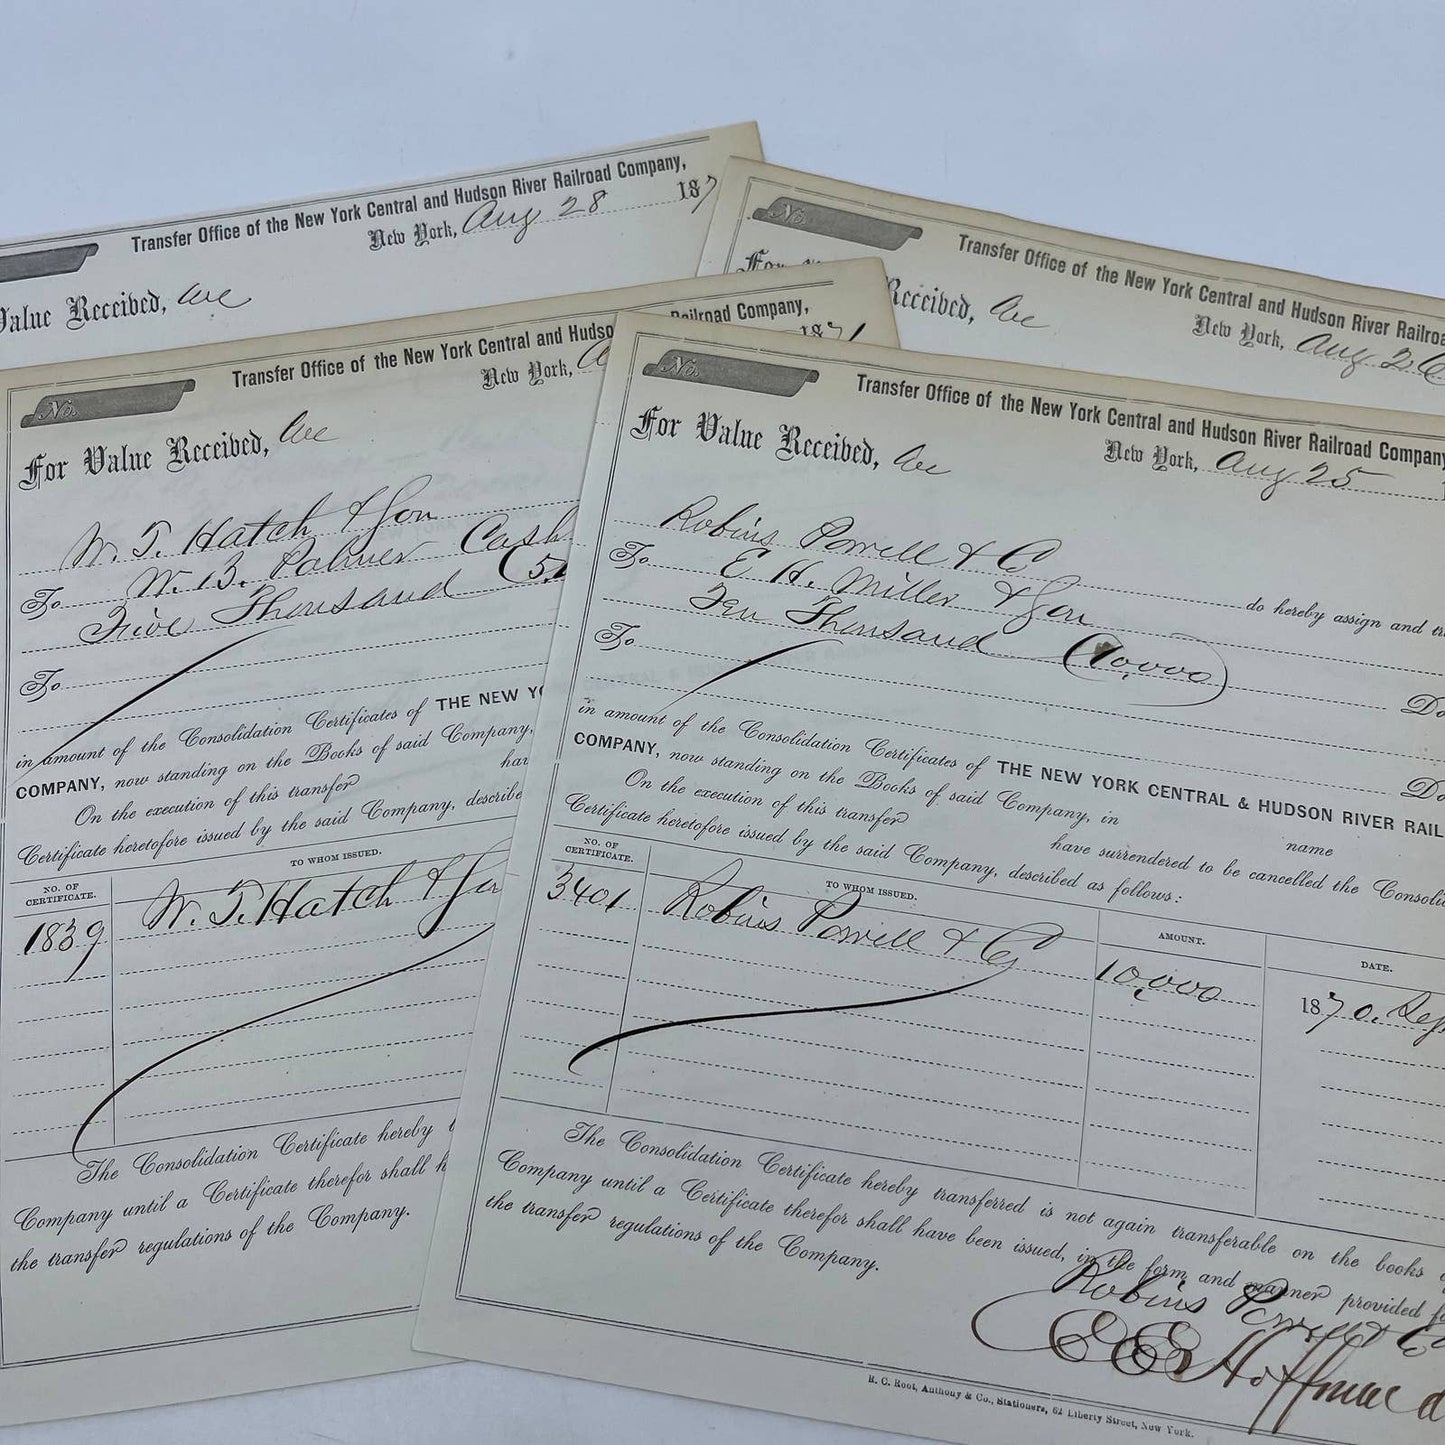 Transfer Office of the New York Central and Hudson River Railroad Company,
New York, Aug 28 187
Value Received, We
No.
Transfer Office of the New York Central and Hudson River Railroa
For
Received, We
New York, Aug 26
No.
Transfer Office of the New York Central and Hudso
Railroad Company,
New York, A
1871
For Value Received, We
W. T. Hatch & Son
To W. B. Palmer Cash
Five Thousand (5,
To
in amount of the Consolidation Certificates of THE NEW YO
COMPANY, now standing on the Books of said Company,
On the execution of this transfer hav
Certificate heretofore issued by the said Company, describe
NO. OF CERTIFICATE.
TO WHOM ISSUED.
1839 W. T. Hatch & Son
The Consolidation Certificate hereby t
Company until a Certificate therefor shall h
the transfer regulations of the Company.
No.
Transfer Office of the New York Central and Hudson River Railroad Company
New York, Aug 25
For Value Received, We
Robins Powell & Co
do hereby assign and tra
To E. H. Miller & Son
Ten Thousand (10,000) Do
To
Do
in amount of the Consolidation Certificates of THE NEW YORK CENTRAL & HUDSON RIVER RAIL
COMPANY, now standing on the Books of said Company, in name
On the execution of this transfer have surrendered to be cancelled the Consoli
Certificate heretofore issued by the said Company, described as follows:
NO. OF CERTIFICATE.
TO WHOM ISSUED.
AMOUNT.
DATE.
3401 Robins Powell & Co 10,000 1870. Sep
The Consolidation Certificate hereby transferred is not again transferable on the books o
Company until a Certificate therefor shall have been issued, in the form and manner provided fo
the transfer regulations of the Company.
Robins Powell & Co
E E Hoffman
R. C. Root, Anthony & Co., Stationers, 62 Liberty Street, New York.